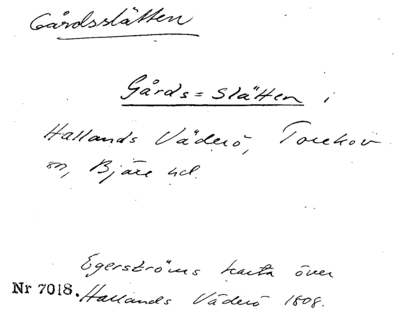 Gårdsslätten
Gårds=slätten i
Hallands Väderö, Torekov
sn, Bjäre hd.
Egerströms karta över
Nr 7018. Hallands Väderö 1808.